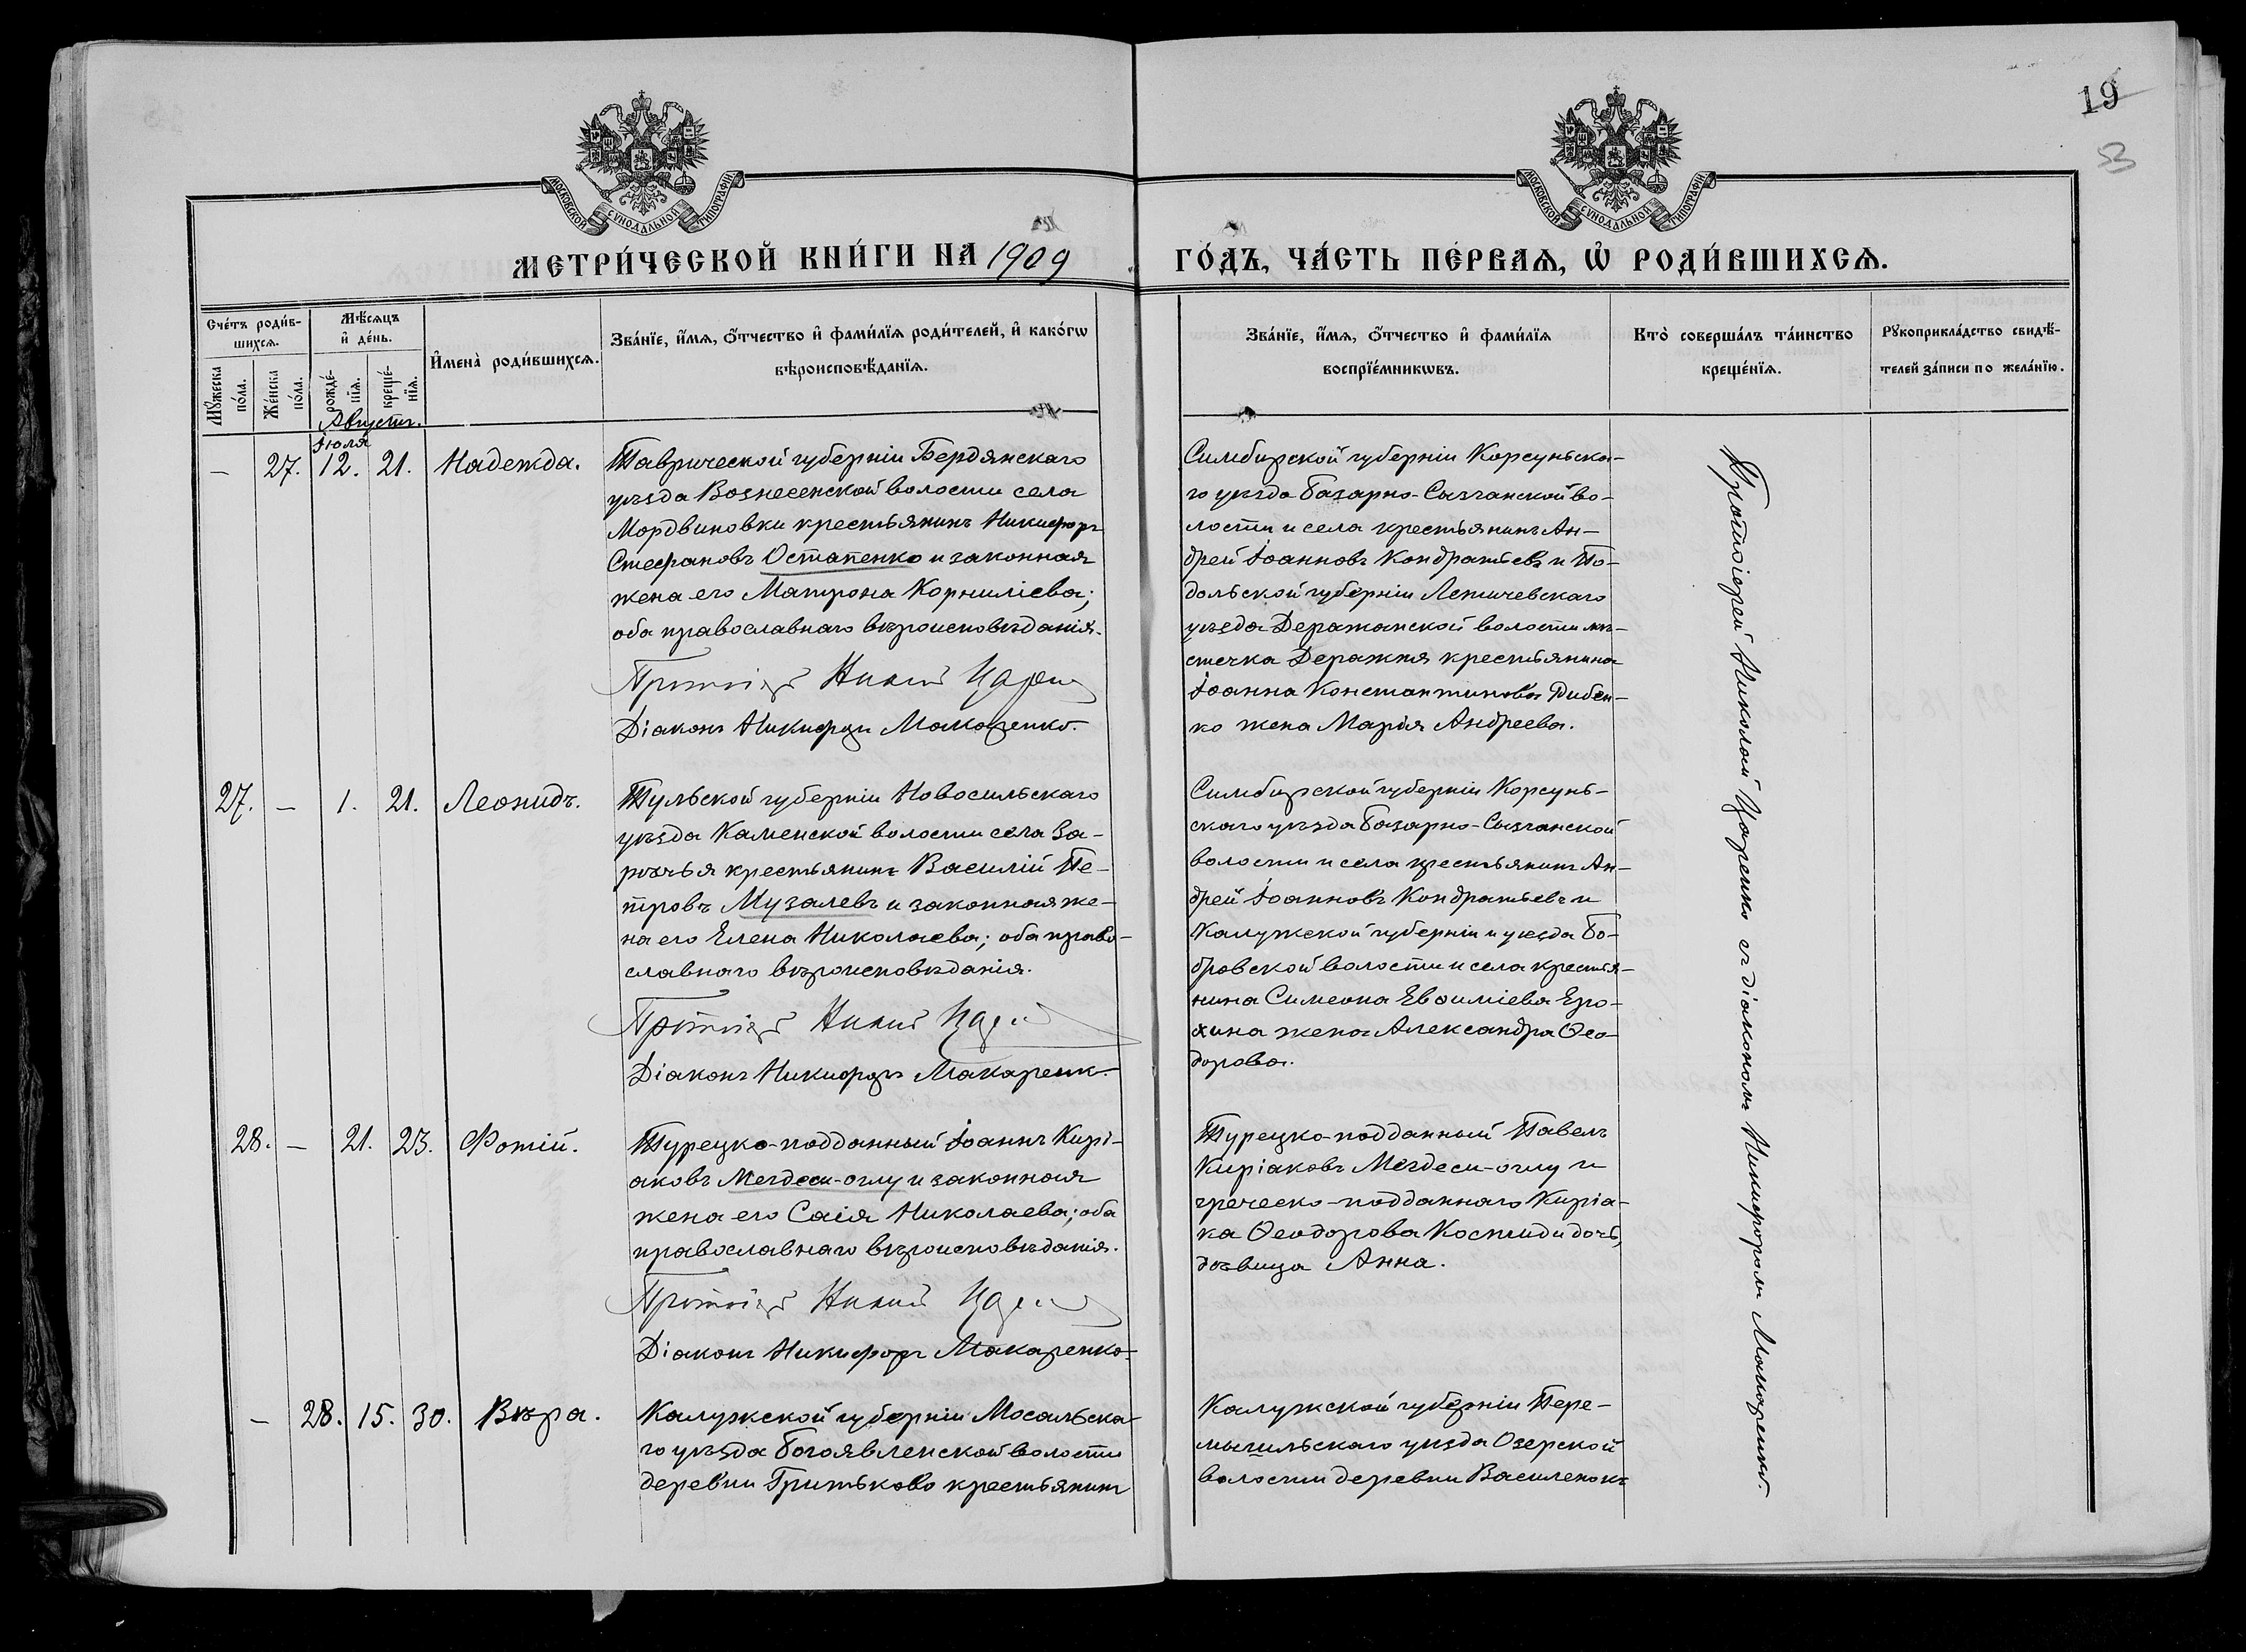 19
53
МОСКОВСКОЙ СѴНОДАЛЬНОЙ ТИПОГРАФІИ
МОСКОВСКОЙ СѴНОДАЛЬНОЙ ТИПОГРАФІИ
МЕТРИ́ЧЕСКОЙ КНИ́ГИ НА 1909 ГО́ДЪ, ЧА́СТЬ ПЕ́РВАѦ, Ѡ҆ РОДИ́ВШИХСѦ.
Сче́тъ роди́в-
шихсѧ.
Мꙋ́жеска по́ла.
Же́нска по́ла.
Мѣ́сѧцъ и҆ де́нь.
рожде́-
нїѧ.
креще́-
нїѧ.
И҆мена̀ роди́вшихсѧ.
Зва́нїе, и҆́мѧ, ѻ҆́тчество и҆ фами́лїѧ роди́телей, и҆ како́гѡ
вѣроисповѣ́данїѧ.
Зва́нїе, и҆́мѧ, ѻ҆́тчество и҆ фами́лїѧ
воспрїе́мникѡвъ.
Кто̀ соверша́лъ та́инство
креще́нїѧ.
Рꙋкоприкла́дство свидѣ́-
телей за́писи по жела́нїю.
Августъ.
Іюля
— 27. 12. 21. Надежда.
Таврической губерніи Бердянскаго
уѣзда Вознесенской волости села
Мордвиновки крестьянинъ Никифоръ
Стефановъ Остапенко и законная
жена его Матрона Корниліева;
оба православнаго вѣроисповѣданія.
Діаконъ Никифоръ Макаренко.
Симбирской губерніи Корсуньска-
го уѣзда Базарно-Сызганской во-
лости и села крестьянинъ Ан-
дрей Іоанновъ Кондратьевъ и По-
дольской губерніи Летичевскаго
уѣзда Деражанской волости мѣ-
стечка Деражня крестьянина
Іоанна Константинова Дибен-
ко жена Марія Андреева.
27. — 1. 21. Леонидъ.
Тульской губерніи Новосильскаго
уѣзда Каменской волости села За-
рѣчья крестьянинъ Василій Пе-
тровъ Музалевъ и законная же-
на его Елена Николаева; оба право-
славнаго вѣроисповѣданія.
Діаконъ Никифоръ Макаренк.
Симбирской губерніи Корсунь-
скаго уѣзда Базарно-Сызганской
волости и села крестьянинъ Ан-
дрей Іоанновъ Кондратьевъ и
Калужской губерніи и уѣзда Бо-
бровской волости и села крестья-
нина Симеона Евѳиміева Еро-
хина жена Александра Ѳео-
дорова.
28. — 21. 23. Фотій.
Турецко-подданный Іоаннъ Кирі-
аковъ Мегдеси-оглу и законная
жена его Саія Николаева; оба
православнаго вѣроисповѣданія.
Діаконъ Никифоръ Макаренко.
Турецко-подданный Павелъ
Киріаковъ Мегдеси-оглу и
греческо-подданнаго Киріа-
ка Ѳеодорова Костиди дочь,
дѣвица Анна.
— 28. 15. 30. Вѣра.
Калужской губерніи Мосальска-
го уѣзда Богоявленской волости
деревни Гритьково крестьянинъ
Калужской губерніи Пере-
мышльскаго уѣзда Озерской
волости деревни Василенокъ
Протоіерей Николай Царенко съ діакономъ Никифоромъ Макаренко.